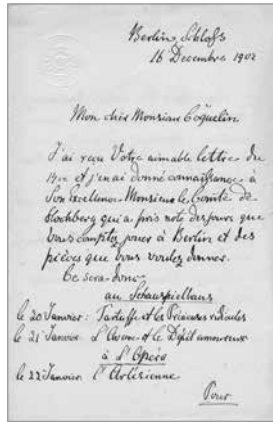 Berlin, Schloss
16 Decembre 1902
Mon cher Monsieur Coquelin
J'ai reçu Votre aimable lettre du
14ne et j'en ai donné connaissance à
Son Excellence Monsieur le Comte de
Hochberg qui a pris note des jours que
vous comptez jouer à Berlin et des
pièces que vous voulez donner.
Ce sera donc
au Schauspielhaus
le 20 Janvier: Tartuffe et les Précieuses ridicules
le 21 Janvier L'Avare et le Dépit amoureux
à l'Opéra
le 22 Janvier l'Arlésienne
Pour